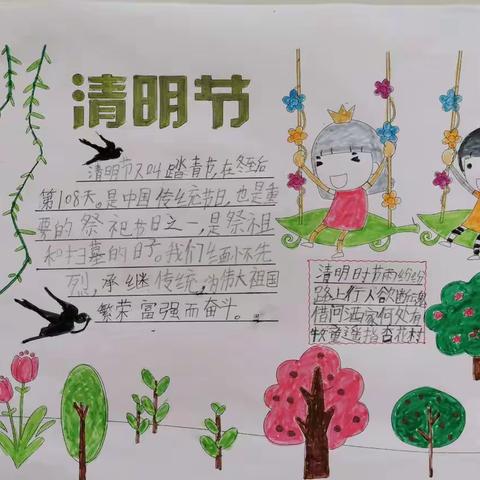 清明节
清明节又叫踏青节,在冬至后
第108天。是中国传统节日,也是重
要的祭祀节日之一,是祭祖
和扫墓的日子。我们缅怀先
烈,承继传统,为伟大祖国
繁荣富强而奋斗。
清明时节雨纷纷
路上行人欲断魂
借问酒家何处有
牧童遥指杏花村